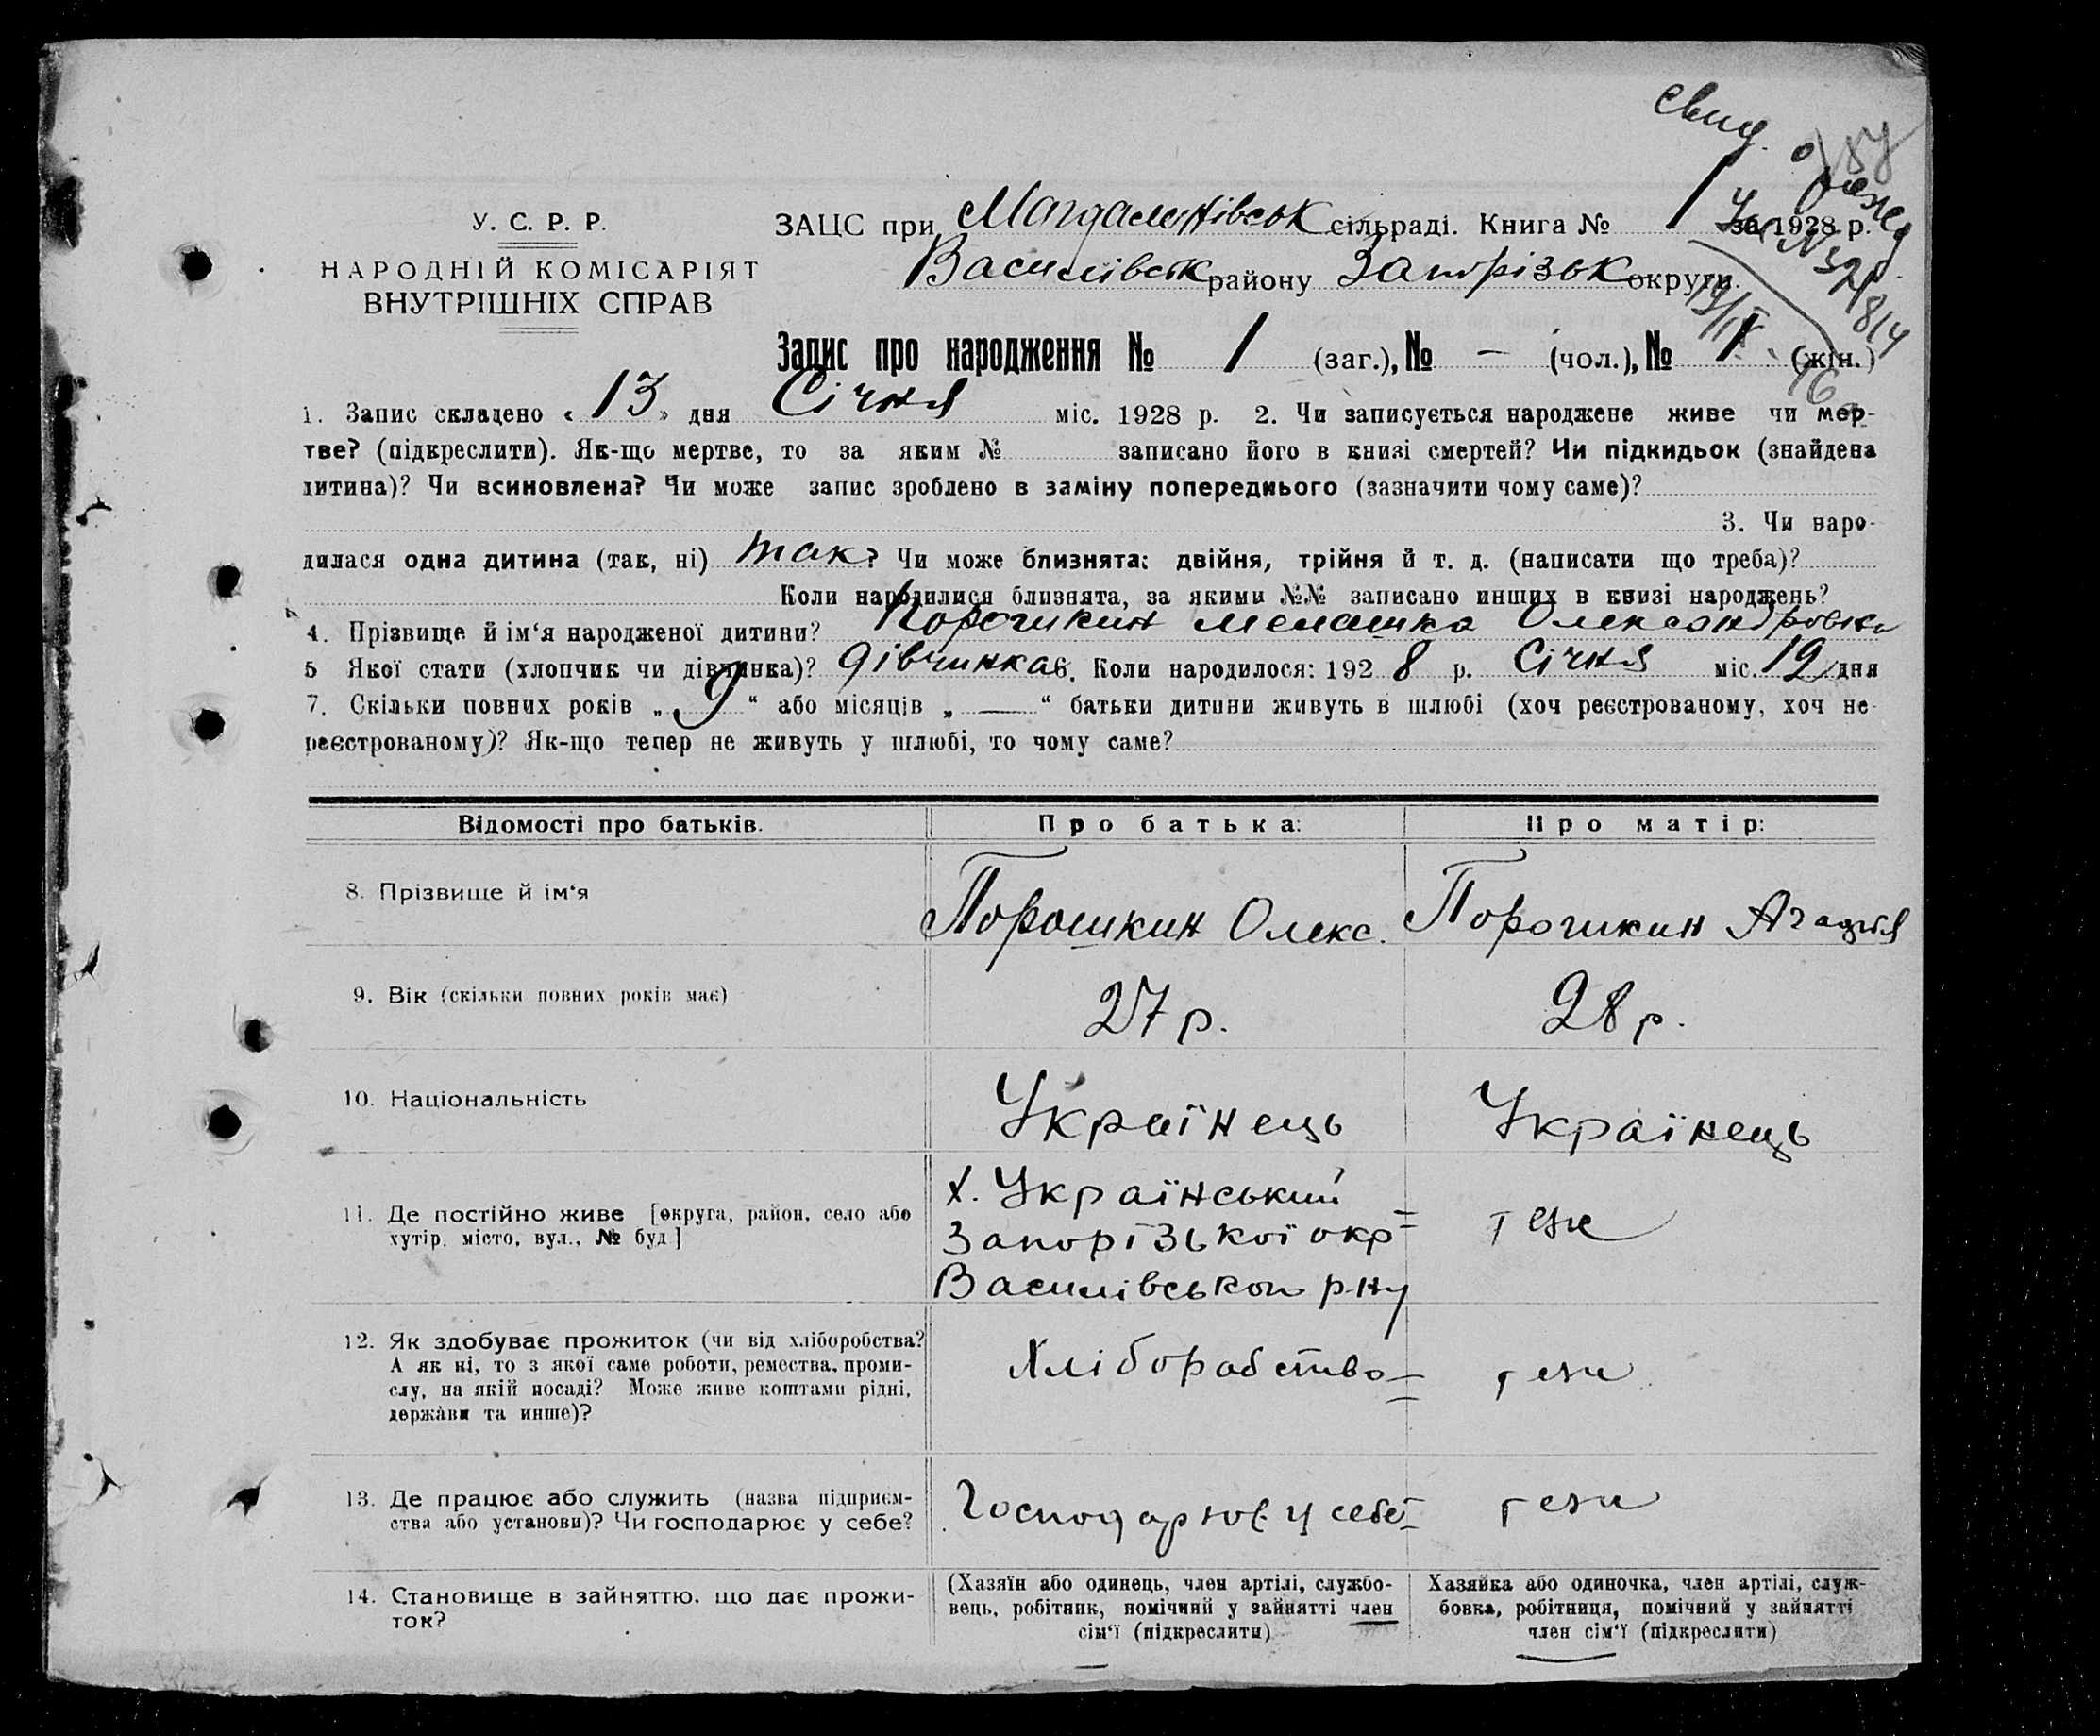 свид. о
рожд.
У. С. Р. Р.
НАРОДНІЙ КОМІСАРІЯТ
ВНУТРІШНІХ СПРАВ
ЗАЦС при Магдалинівськ сільраді. Книга № 1 за 1928 р.
Василівськ району Запорізьк округи.
Запис про народження № 1 (заг.), № — (чол.), № 1 (жін.)
1. Запис складено « 13 » дня Січня міс. 1928 р. 2. Чи записується народжене живе чи мер-
тве? (підкреслити). Як-що мертве, то за яким № записано його в книзі смертей? Чи підкидьок (знайдена
дитина)? Чи всиновлена? Чи може запис зроблено в заміну попереднього (зазначити чому саме)?
3. Чи наро-
дилася одна дитина (так, ні) так? Чи може близнята: двійня, трійня й т. д. (написати що треба)?
Коли народилися близнята, за якими №№ записано инших в книзі народжень?
4. Прізвище й ім‘я народженої дитини? Порошкин Мелашка Олександровна
5 Якої стати (хлопчик чи дівчинка)? дівчинка 6. Коли народилося: 1928 р. Січня міс. 12 дня
7. Скільки повних років „ 9 “ або місяців „ — “ батьки дитини живуть в шлюбі (хоч реєстрованому, хоч не-
реєстрованому)? Як-що тепер не живуть у шлюбі, то чому саме?
Відомості про батьків. Про батька: Про матір:
8. Прізвище й ім‘я Порошкин Олекс. Порошкин
9. Вік (скільки повних років має) 27 р. 28 р.
10. Національність Українець Українець
11. Де постійно живе [округа, район, село або
хутір, місто, вул., № буд]
х. Український
Запорізької окр
Василівського р-ну
теж
12. Як здобуває прожиток (чи від хліборобства?
А як ні, то з якої саме роботи, ремества, проми-
слу, на якій посаді? Може живе коштами рідні,
держави та инше)?
Хліборабство
теж
13. Де працює або служить (назва підприєм-
ства або установи)? Чи господарює у себе?
Господарює у себе
теж
14. Становище в зайняттю, що дає прожи-
ток?
(Хазяїн або одинець, член артілі, службо-
вець, робітник, помічний у зайнятті член
сім‘ї (підкреслити)
Хазяйка або одиночка, член артілі, служ-
бовка, робітниця, помічний у зайнятті
член сім‘ї (підкреслити)